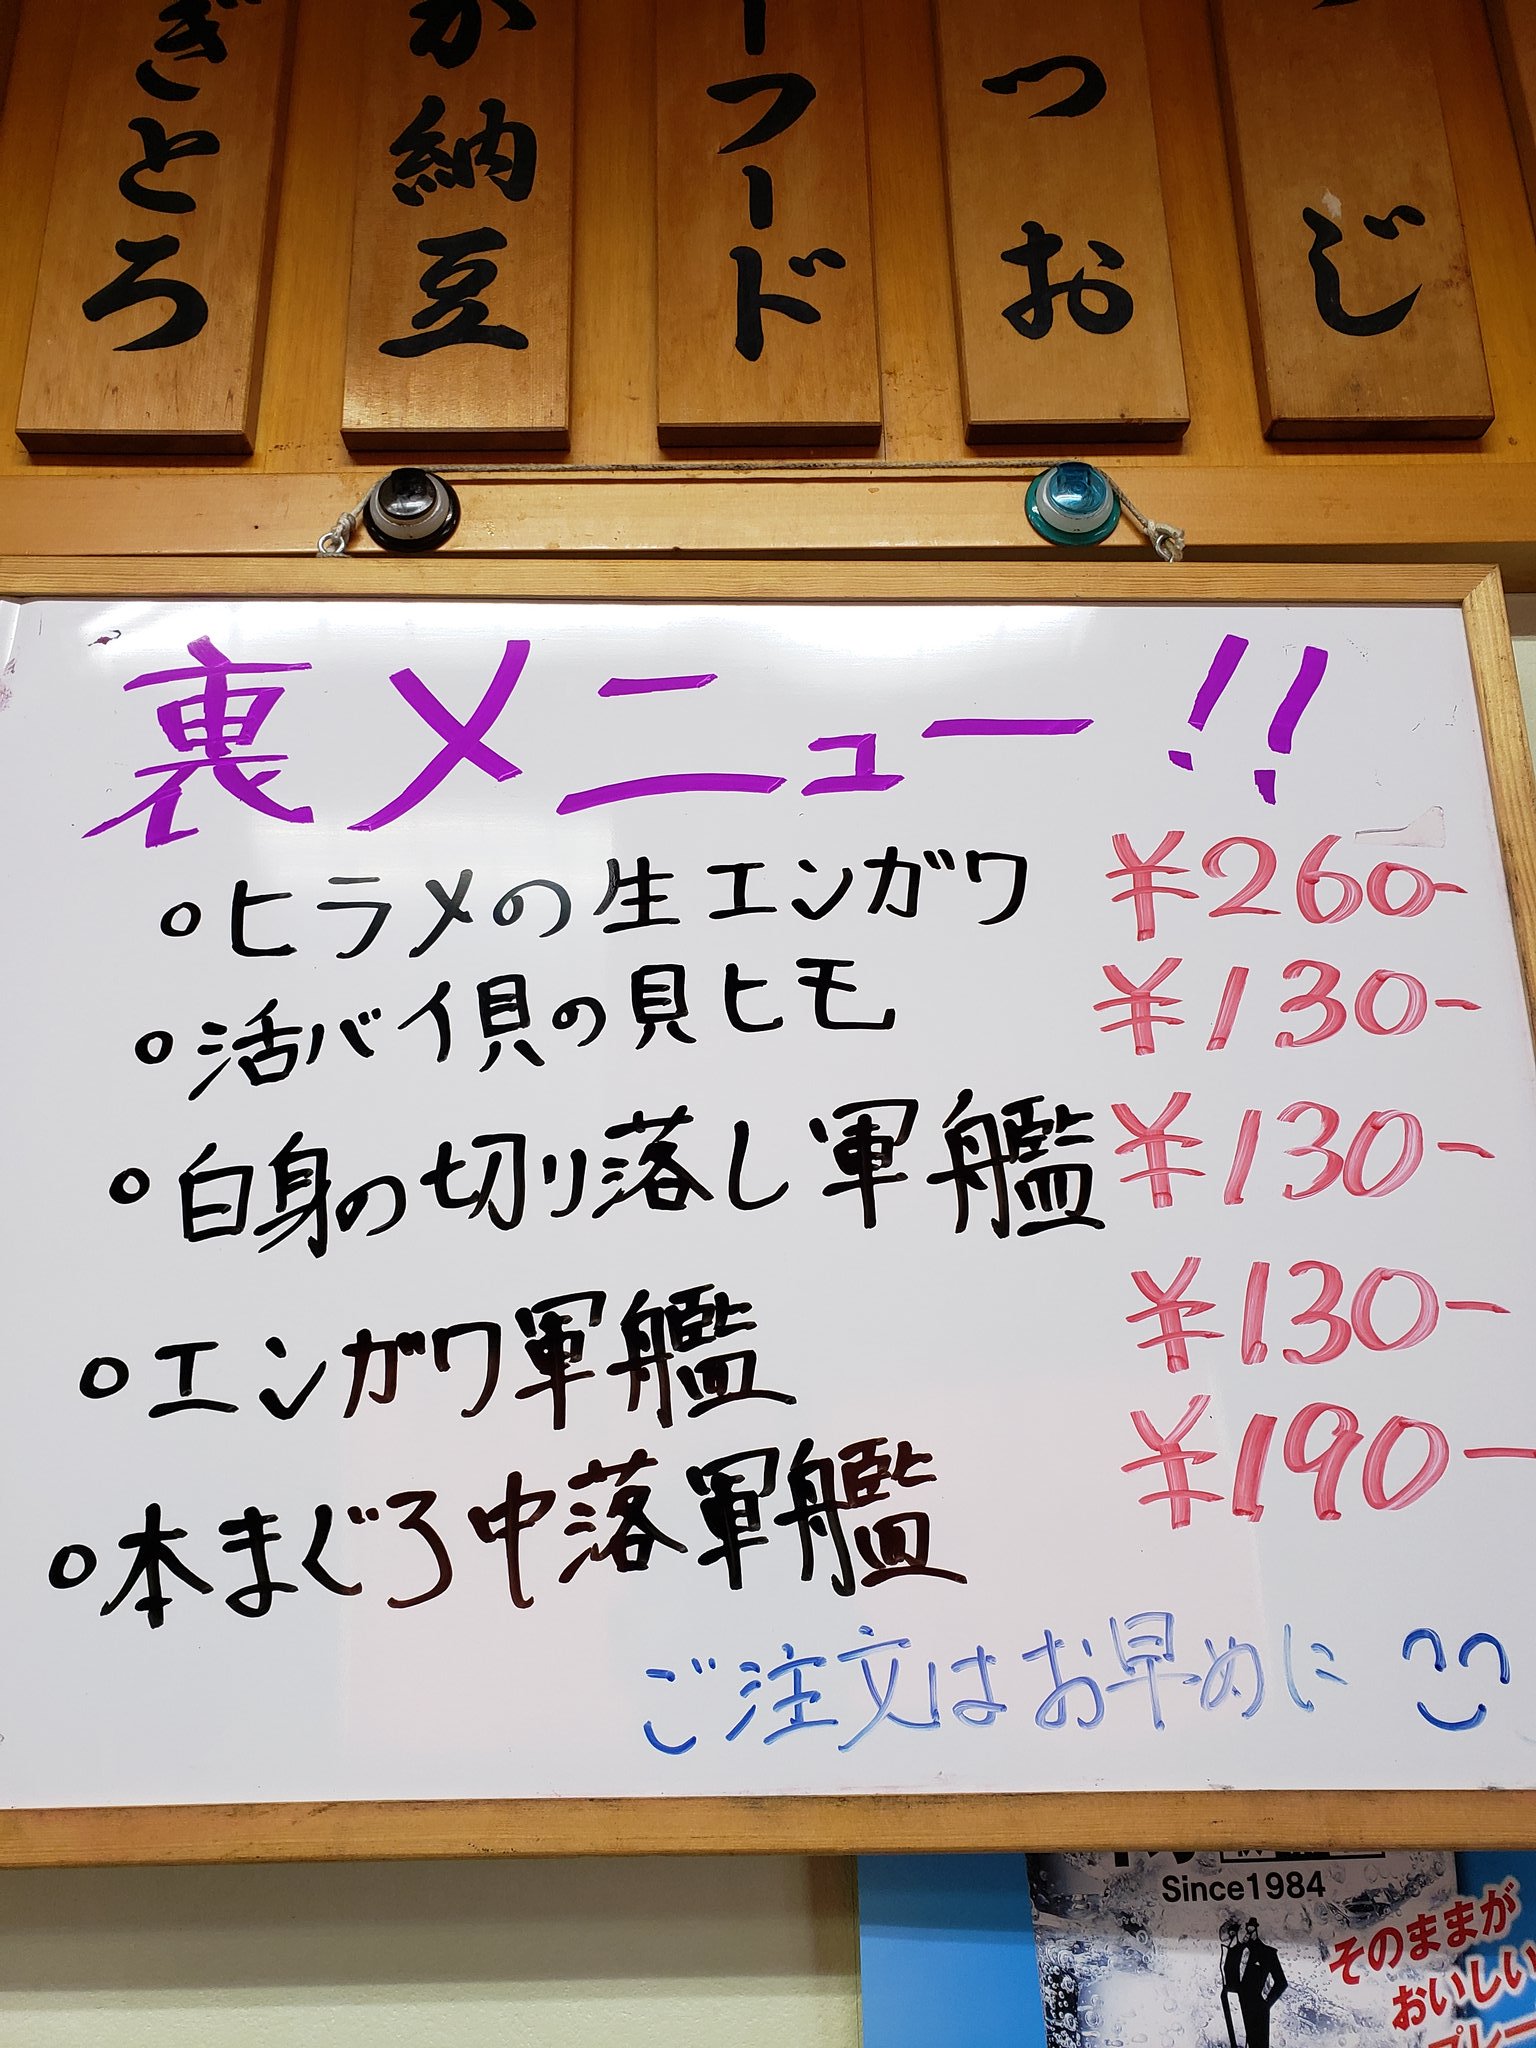 ぎとろ
か納豆
ーフード
つお
じ
裏メニュー!!
○ヒラメの生エンガワ ¥260-
○活バイ貝の貝ヒモ ¥130-
○白身の切り落し軍艦 ¥130-
○エンガワ軍艦 ¥130-
○本まぐろ中落軍艦 ¥190-
ご注文はお早めに
Since1984
そのままが
おいしい
プレー